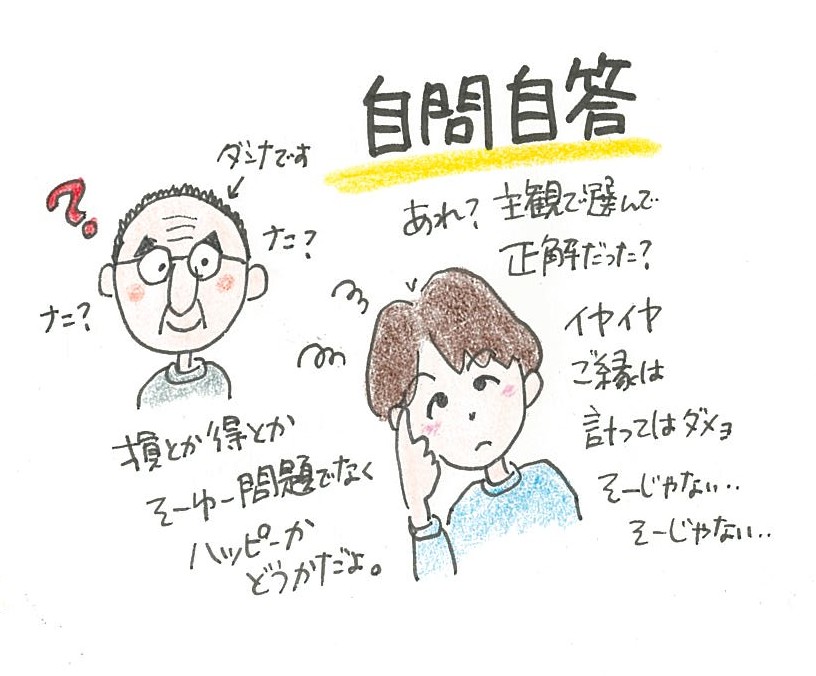 自問自答
ダンナです
?
ナニ?
ナニ?
あれ? 主観で選んで
正解だった?
イヤイヤ
ご縁は
計ってはダメョ
そーじゃない‥
そーじゃない‥
損とか得とか
そーゆー問題でなく
ハッピーか
どうかだよ。